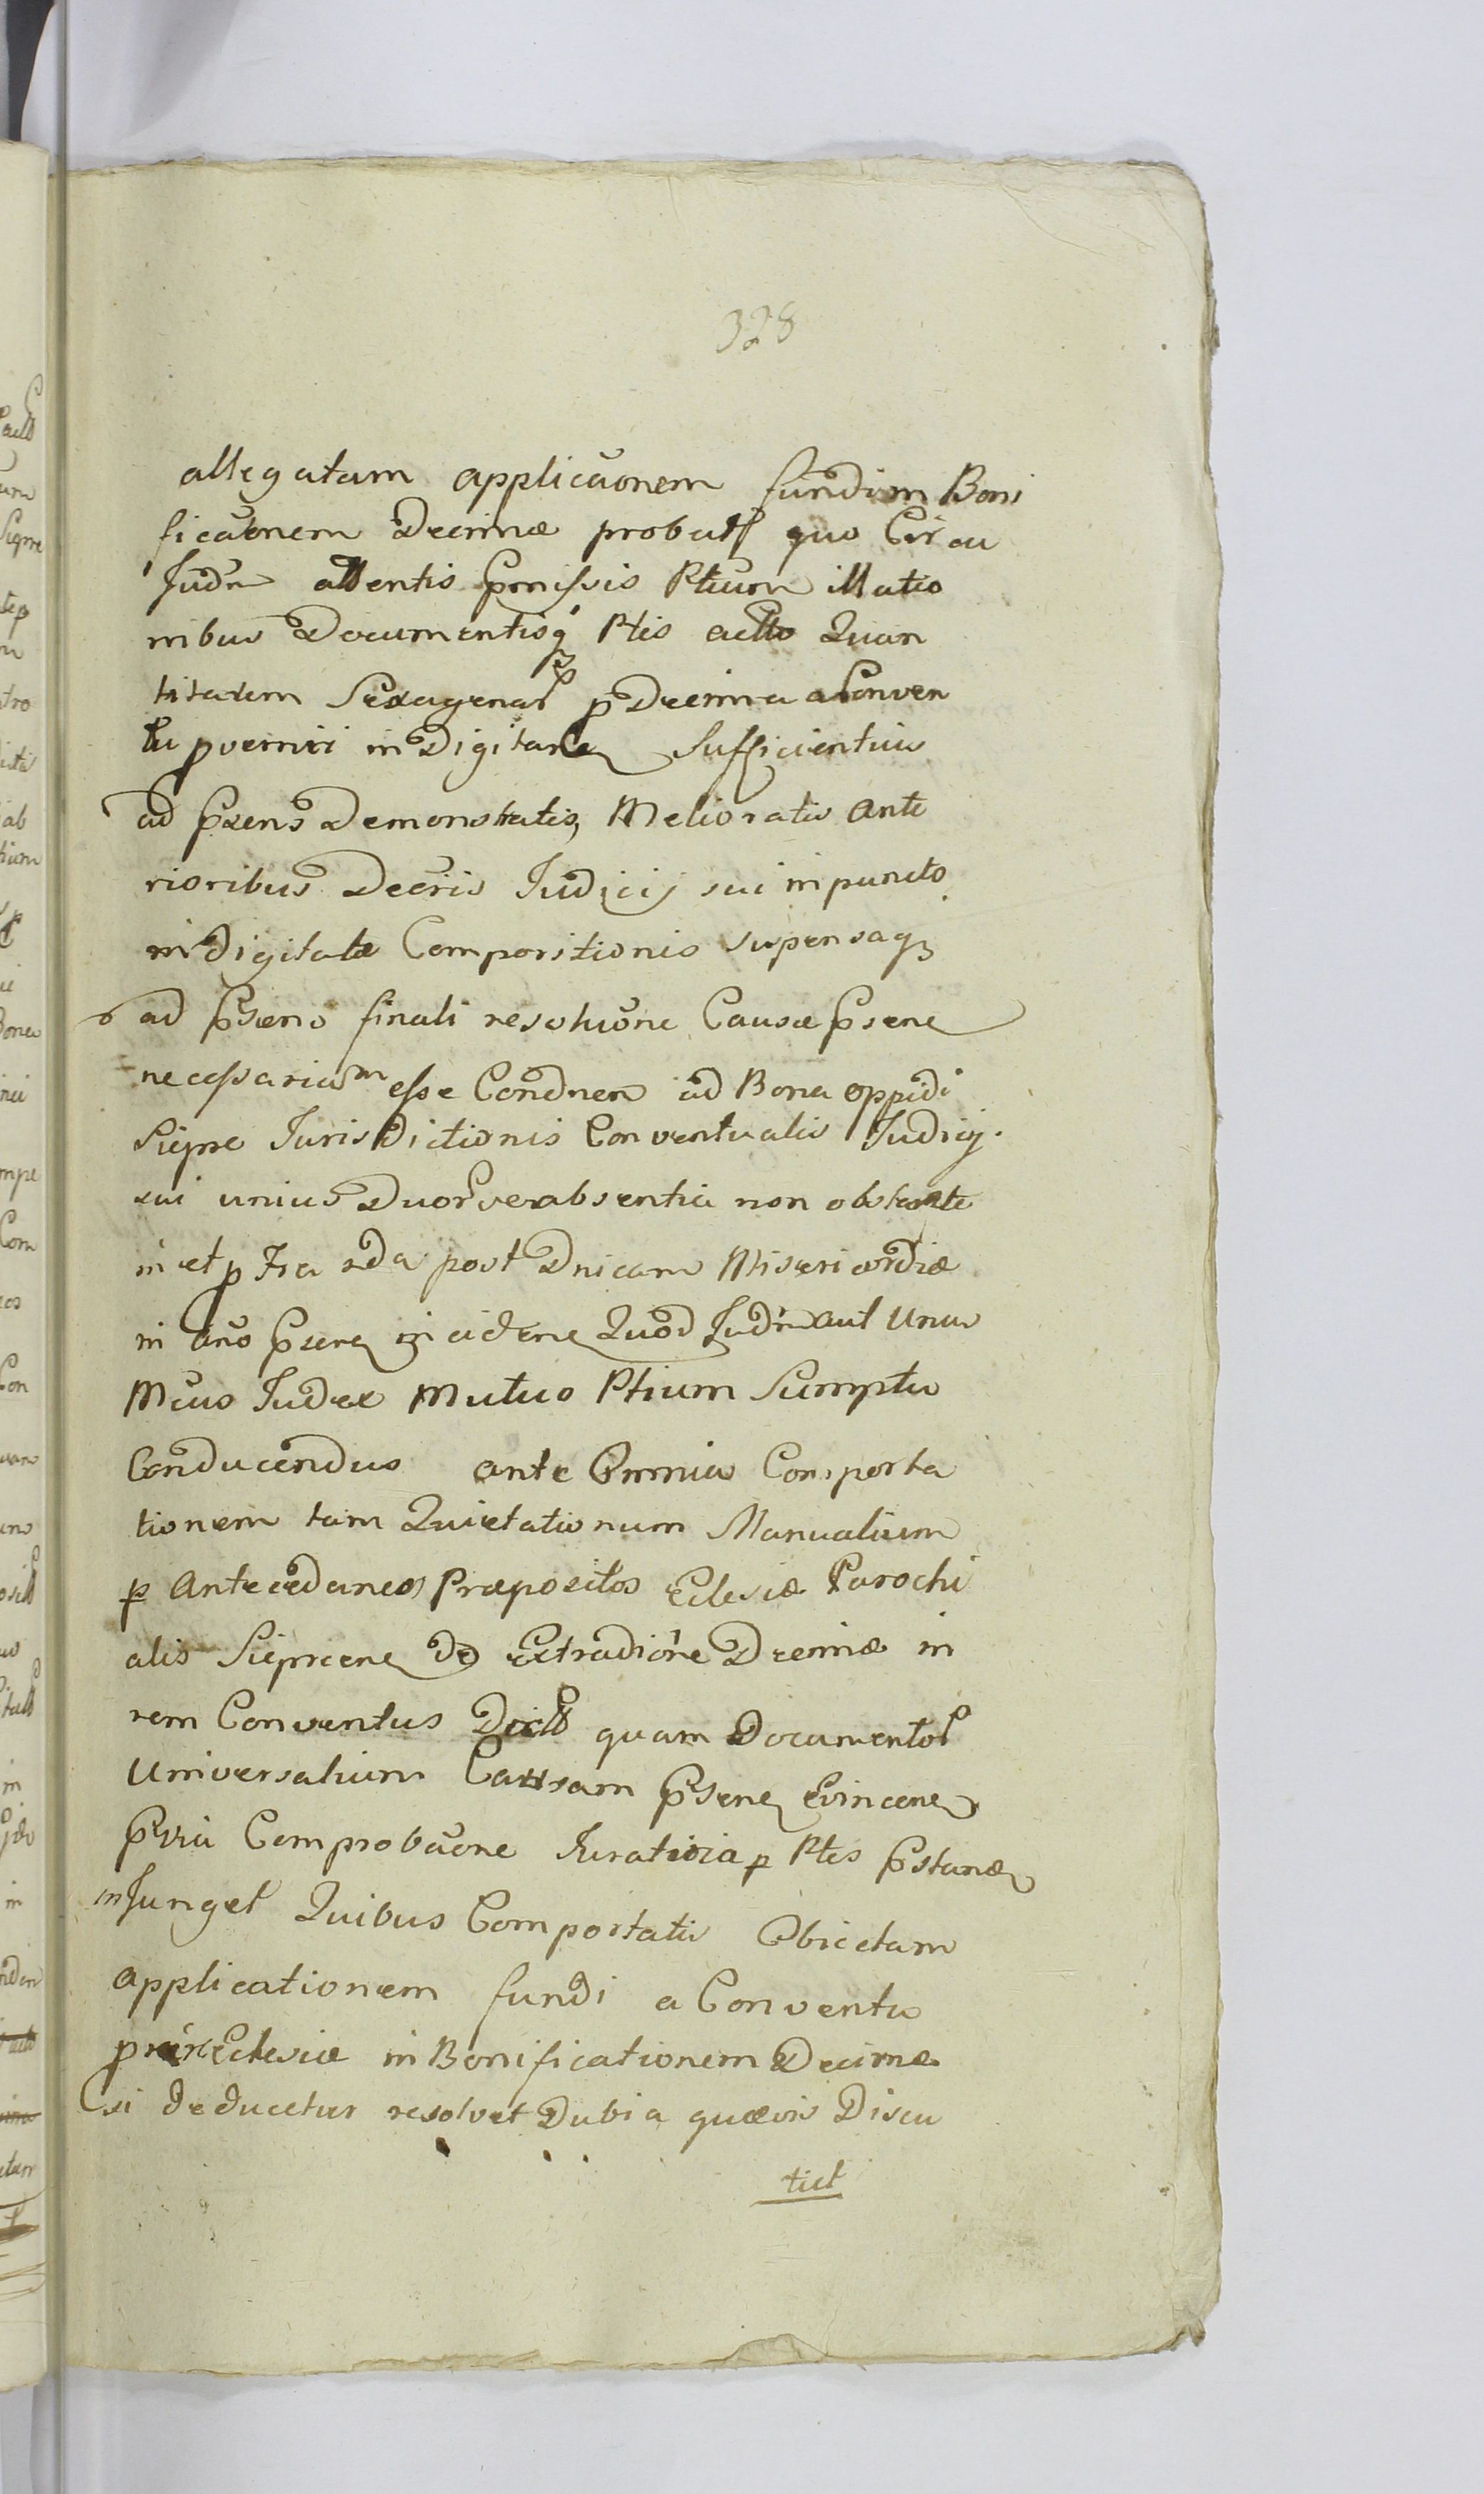 328
allegatam applicaōnem fundi in Boni
ficaōnem Decimæ probatt quo Circa
Judm attentis Pmissis Ptium illatio
nibus Documentisq Ptis actto Quan
titatem Sexagenar p Decima a Conven
tu pveniri in Digitare Sufficientius
ad Psens Demonstratis, Melioratis Ante
rioribus Decris Judicij sui in puncto
in Digitatæ Compositionis suspensaq
ad Psens finali resolutiōne Causæ Psene
necessariam esse Condnen ad Bona oppidi
Siepne Jurisdictionis Conventualis Judicij
sui unius Duor vero absentia non obstante
in et p Fra 2da post Dnicam Misericordiæ
in Ano Psene incidene Quod Judm aut Unus
Meus Judex Mutuo Ptium Sumptu
Conducendus ante Omnia Comporta
tionem tam Quietationum Manualium
p Antecedaneos Præpositos Eclesiæ Parochi
alis Siepreene de Extradiōne Decimæ in
rem Conventus Dictt quam Documentor
Universalium Causam Psene Evincene
Pvia Comprobaōne Juratoria p Ptes Pstanæ
inJunget Quibus Comportatis Obiectam
applicationem fundi a Conventu
Eclesiæ in Bonificationem Decimæ
si deducetur resolvet Dubia quævis Discu
tiet